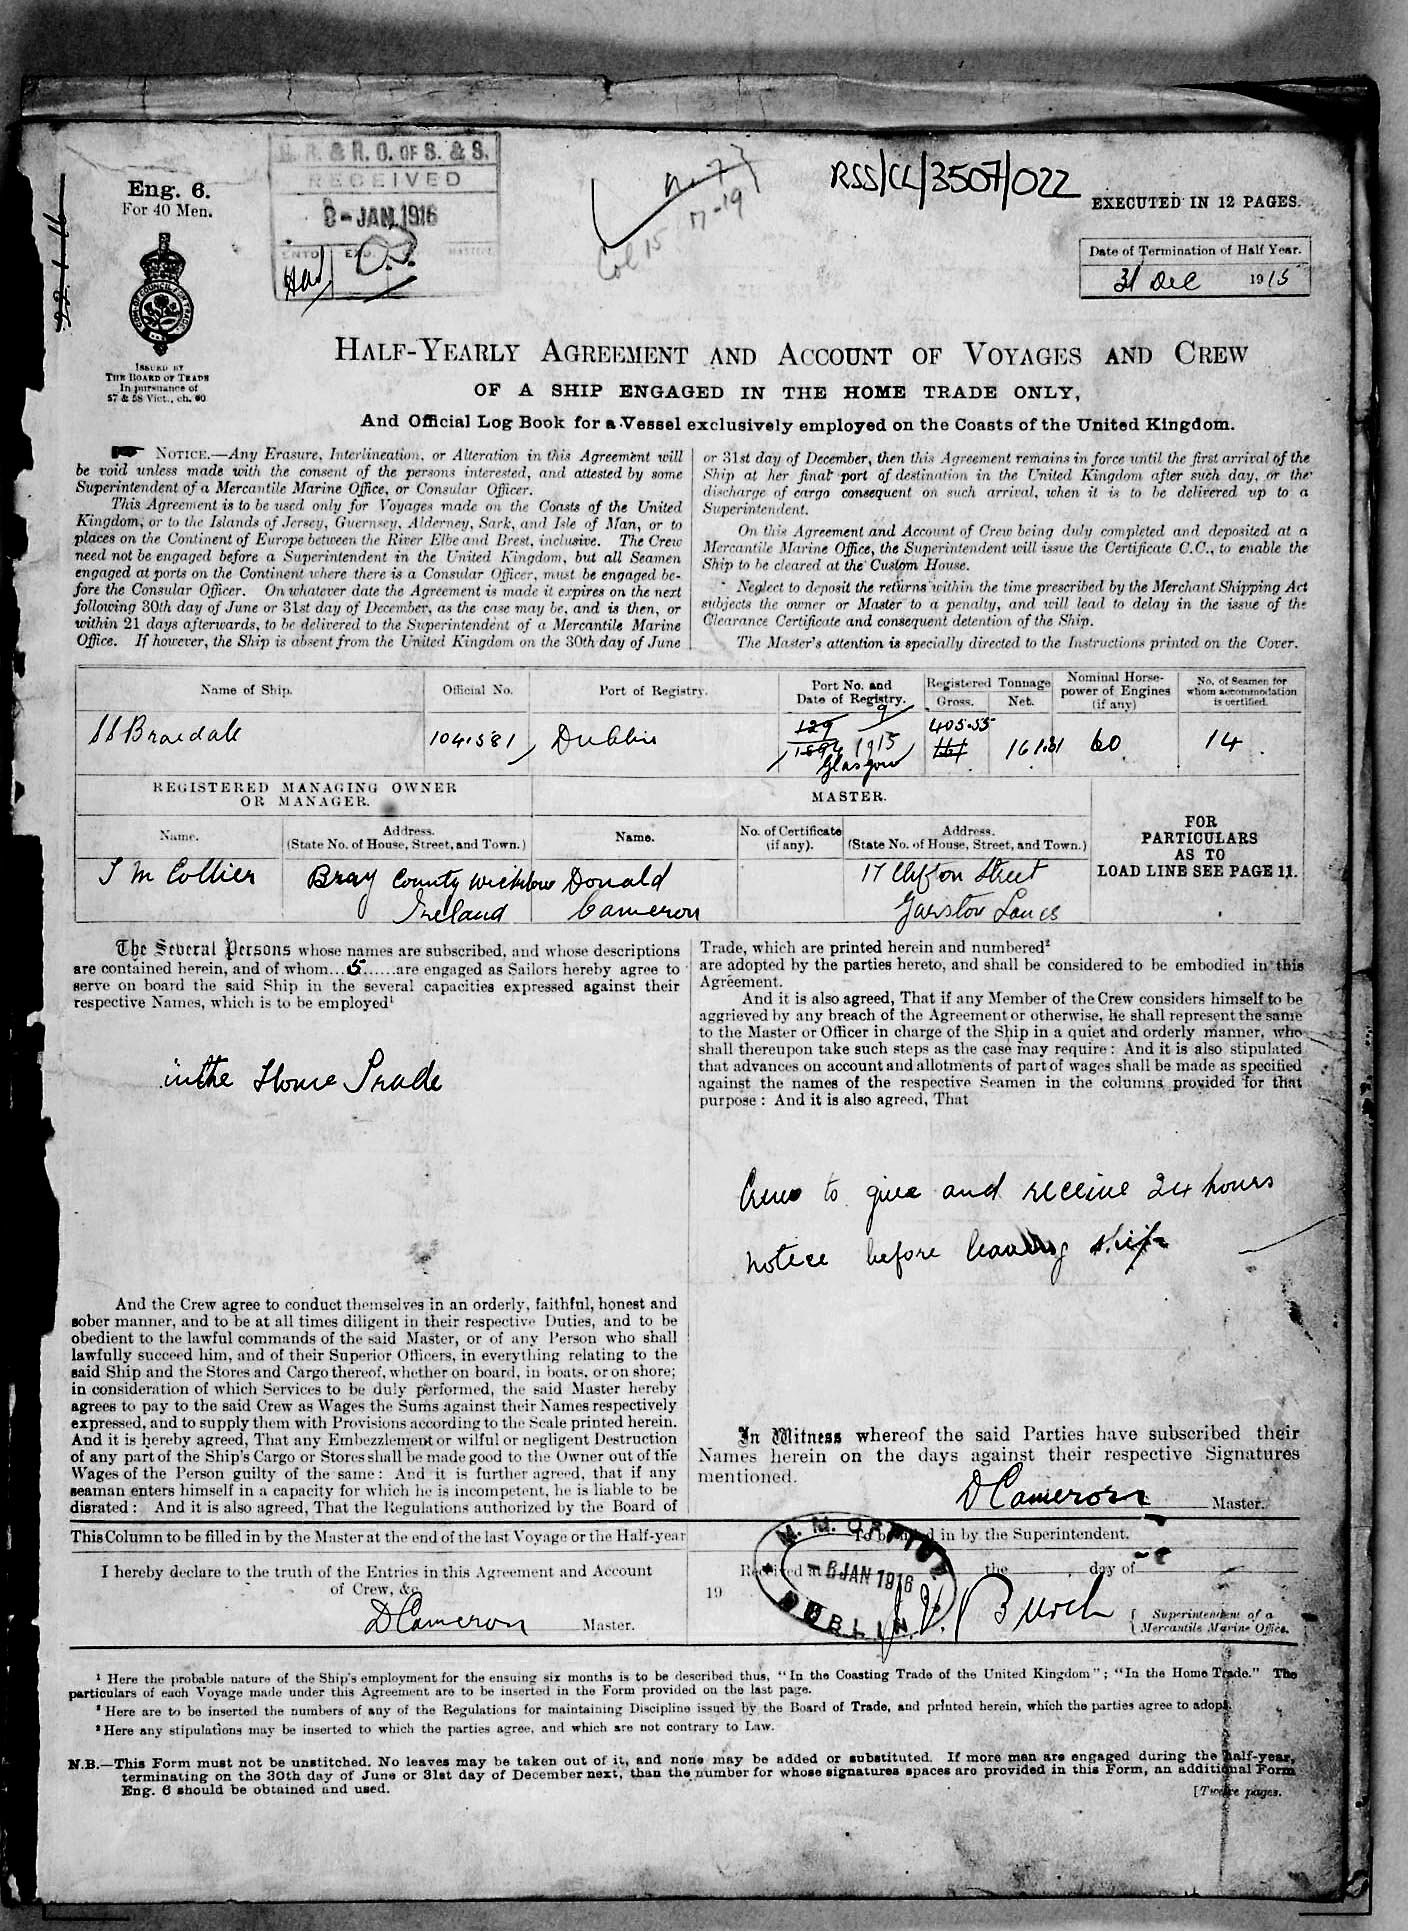 R. & R. O. OF S. & S.
RECEIVED
8-JAN.1916
RSS/CL/3507/022
Eng. 6.
For 40 Men.
22.1.16
Col 15 17-19
EXECUTED IN 12 PAGES.
Date of Termination of Half Year.
31 Dec 1915
ISSUED BY
THE BOARD OF TRADE
In pursuance of
57 & 58 Vict., ch. 60
HALF-YEARLY AGREEMENT AND ACCOUNT OF VOYAGES AND CREW
OF A SHIP ENGAGED IN THE HOME TRADE ONLY,
And Official Log Book for a Vessel exclusively employed on the Coasts of the United Kingdom.
NOTICE.—Any Erasure, Interlineation, or Alteration in this Agreement will
be void unless made with the consent of the persons interested, and attested by some
Superintendent of a Mercantile Marine Office, or Consular Officer.
This Agreement is to be used only for Voyages made on the Coasts of the United
Kingdom, or to the Islands of Jersey, Guernsey, Alderney, Sark, and Isle of Man, or to
places on the Continent of Europe between the River Elbe and Brest, inclusive. The Crew
need not be engaged before a Superintendent in the United Kingdom, but all Seamen
engaged at ports on the Continent where there is a Consular Officer, must be engaged be-
fore the Consular Officer. On whatever date the Agreement is made it expires on the next
following 30th day of June or 31st day of December, as the case may be, and is then, or
within 21 days afterwards, to be delivered to the Superintendent of a Mercantile Marine
Office. If however, the Ship is absent from the United Kingdom on the 30th day of June
or 31st day of December, then this Agreement remains in force until the first arrival of the
Ship at her final port of destination in the United Kingdom after such day, or the
discharge of cargo consequent on such arrival, when it is to be delivered up to a
Superintendent.
On this Agreement and Account of Crew being duly completed and deposited at a
Mercantile Marine Office, the Superintendent will issue the Certificate C.C., to enable the
Ship to be cleared at the Custom House.
Neglect to deposit the returns within the time prescribed by the Merchant Shipping Act
subjects the owner or Master to a penalty, and will lead to delay in the issue of the
Clearance Certificate and consequent detention of the Ship.
The Master's attention is specially directed to the Instructions printed on the Cover.
Name of Ship. Official No. Port of Registry. Port No. and Date of Registry. Registered Tonnage Gross. Net. Nominal Horse-power of Engines (if any) No. of Seamen for whom accommodation is certified.
SS Braedale 104581 Dublin 129 1894 9 1915 Glasgow 405.55 161.81 60 14
REGISTERED MANAGING OWNER
OR MANAGER.
MASTER.
Name. Address. (State No. of House, Street, and Town.) Name. No. of Certificate (if any). Address. (State No. of House, Street, and Town.)
FOR
PARTICULARS
AS TO
LOAD LINE SEE PAGE 11.
J M Collier Bray County Wicklow Donald 17 Clifton Street
Ireland Cameron Garston Lancs
The Several Persons whose names are subscribed, and whose descriptions
are contained herein, and of whom...5......are engaged as Sailors hereby agree to
serve on board the said Ship in the several capacities expressed against their
respective Names, which is to be employed¹
in the Home Trade
And the Crew agree to conduct themselves in an orderly, faithful, honest and
sober manner, and to be at all times diligent in their respective Duties, and to be
obedient to the lawful commands of the said Master, or of any Person who shall
lawfully succeed him, and of their Superior Officers, in everything relating to the
said Ship and the Stores and Cargo thereof, whether on board, in boats, or on shore;
in consideration of which Services to be duly performed, the said Master hereby
agrees to pay to the said Crew as Wages the Sums against their Names respectively
expressed, and to supply them with Provisions according to the Scale printed herein.
And it is hereby agreed, That any Embezzlement or wilful or negligent Destruction
of any part of the Ship's Cargo or Stores shall be made good to the Owner out of the
Wages of the Person guilty of the same: And it is further agreed, that if any
seaman enters himself in a capacity for which he is incompetent, he is liable to be
disrated: And it is also agreed, That the Regulations authorized by the Board of
Trade, which are printed herein and numbered²
are adopted by the parties hereto, and shall be considered to be embodied in this
Agreement.
And it is also agreed, That if any Member of the Crew considers himself to be
aggrieved by any breach of the Agreement or otherwise, he shall represent the same
to the Master or Officer in charge of the Ship in a quiet and orderly manner, who
shall thereupon take such steps as the case may require: And it is also stipulated
that advances on account and allotments of part of wages shall be made as specified
against the names of the respective Seamen in the columns provided for that
purpose: And it is also agreed, That
Crew to give and receive 24 hours
notice before leaving ship
In Witness whereof the said Parties have subscribed their
Names herein on the days against their respective Signatures
mentioned.
D Cameron Master.
This Column to be filled in by the Master at the end of the last Voyage or the Half-year
I hereby declare to the truth of the Entries in this Agreement and Account
of Crew, &c.
D Cameron Master.
To be filled in by the Superintendent.
Received at the day of
19
M. M. OFFICE
-6 JAN 1916
DUBLIN
J. V. Burch
Superintendent of a
Mercantile Marine Office.
¹ Here the probable nature of the Ship's employment for the ensuing six months is to be described thus, "In the Coasting Trade of the United Kingdom"; "In the Home Trade." The
particulars of each Voyage made under this Agreement are to be inserted in the Form provided on the last page.
² Here are to be inserted the numbers of any of the Regulations for maintaining Discipline issued by the Board of Trade, and printed herein, which the parties agree to adopt.
³ Here any stipulations may be inserted to which the parties agree, and which are not contrary to Law.
N.B.—This Form must not be unstitched. No leaves may be taken out of it, and none may be added or substituted. If more men are engaged during the half-year,
terminating on the 30th day of June or 31st day of December next, than the number for whose signatures spaces are provided in this Form, an additional Form
Eng. 6 should be obtained and used.
[Twelve pages.